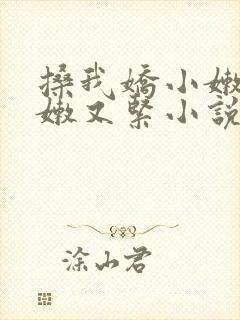 搡我嬌小嫩
嫩又緊小說
涂山君